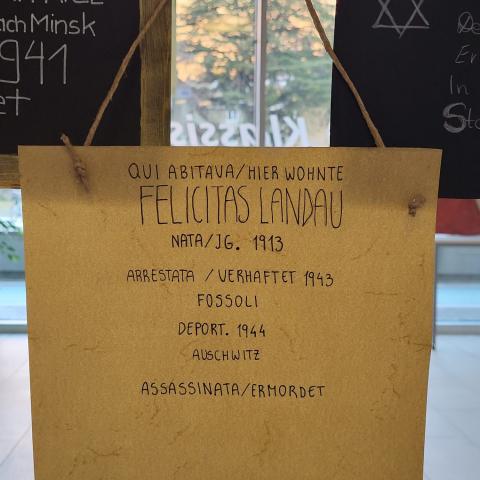 ach Minsk
941
et
QUI ABITAVA/HIER WOHNTE
FELICITAS LANDAU
NATA/JG. 1913
ARRESTATA / VERHAFTET 1943
FOSSOLI
DEPORT. 1944
AUSCHWITZ
ASSASSINATA/ERMORDET
Er
In